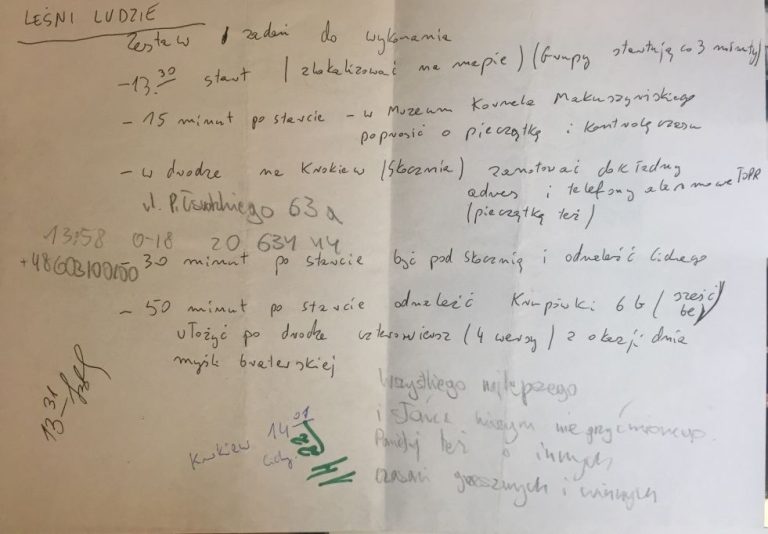 LEŚNI LUDZIE
Zestaw zadań do wykonania
- 13.30 start (zlokalizować na mapie) (Grupy startują co 3 minuty)
- 15 minut po starcie - w Muzeum Kornela Makuszyńskiego
poprosić o pieczątkę i kontrolę czasu
- w drodze na Krokiew (skocznia) zanotować dokładny
adres i telefony alarmowe TOPR
(pieczątkę też)
ul. Piłsudskiego 63a
13:58 0-18 20 634 44
+48603100100
30 minut po starcie być pod skocznią i odnaleźć Cichego
- 50 minut po starcie odnaleźć Krupówki 6b (sześć be)
ułożyć po drodze czterowiersz (4 wersy) z okazji dnia
myśli braterskiej
Wszystkiego najlepszego
i słońca niczym nie
Pamiętaj też o innych
czasach i
13 31
Krokiew 14 01
Cichy
14 22